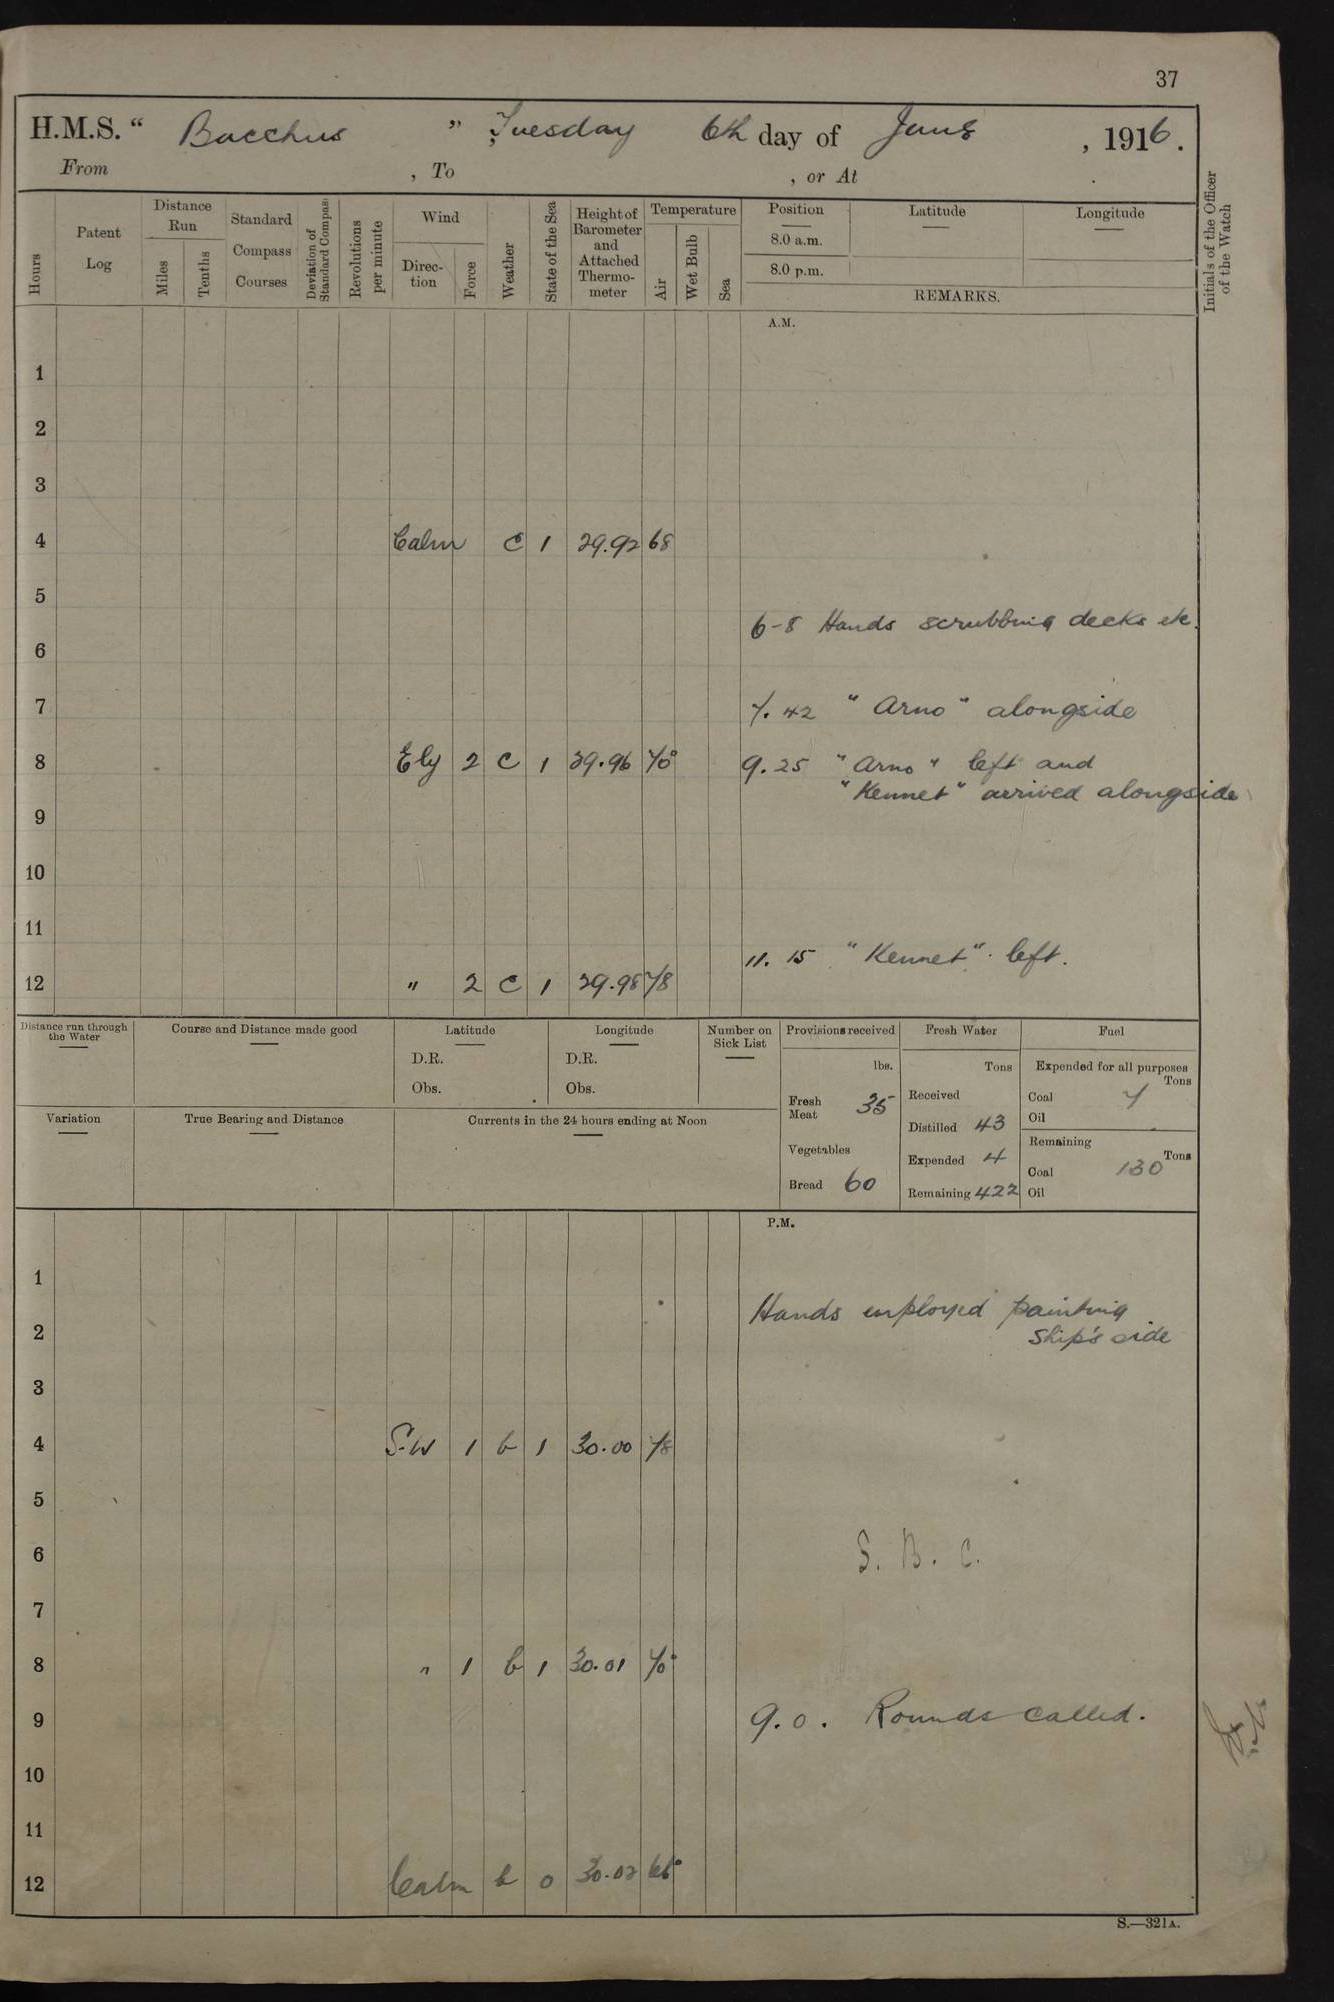 37
H.M.S. “ Bacchus ” , Tuesday 6th day of June , 1916.
From , To , or At .
Hours
Patent Log
Distance Run
Miles
Tenths
Standard Compass Courses
Deviation of Standard Compass
Revolutions per minute
Wind
Direction
Force
Weather
State of the Sea
Height of Barometer and Attached Thermometer
Temperature
Air
Wet Bulb
Sea
Position
Latitude
Longitude
8.0 a.m.
8.0 p.m.
REMARKS.
Initials of the Officer of the Watch
A.M.
1
2
3
4 Calm c 1 29.92 68
5
6-8 Hands scrubbing decks etc.
6
7 7.42 "Arno" alongside
8 Ely 2 c 1 29.96 70° 9.25 "Arno" left and
"Kennet" arrived alongside
9
10
11
11.15 "Kennet" left.
12 " 2 c 1 29.98 78
Distance run through the Water
Course and Distance made good
Latitude
D.R.
Obs.
Longitude
D.R.
Obs.
Number on Sick List
Provisions received
lbs.
Fresh Meat 35
Vegetables
Bread 60
Fresh Water
Tons
Received
Distilled 43
Expended 4
Remaining 422
Fuel
Expended for all purposes
Tons
Coal 7
Oil
Remaining
Tons
Coal 130
Oil
Variation
True Bearing and Distance
Currents in the 24 hours ending at Noon
P.M.
1
Hands employed painting
2 ship's side
3
4 S.W 1 b 1 30.00 78
5
6 S. B. C.
7
8 " 1 b 1 30.01 70°
9 9.0. Rounds called.
10
11
12 Calm b 0 30.02 66°
S.—321A.